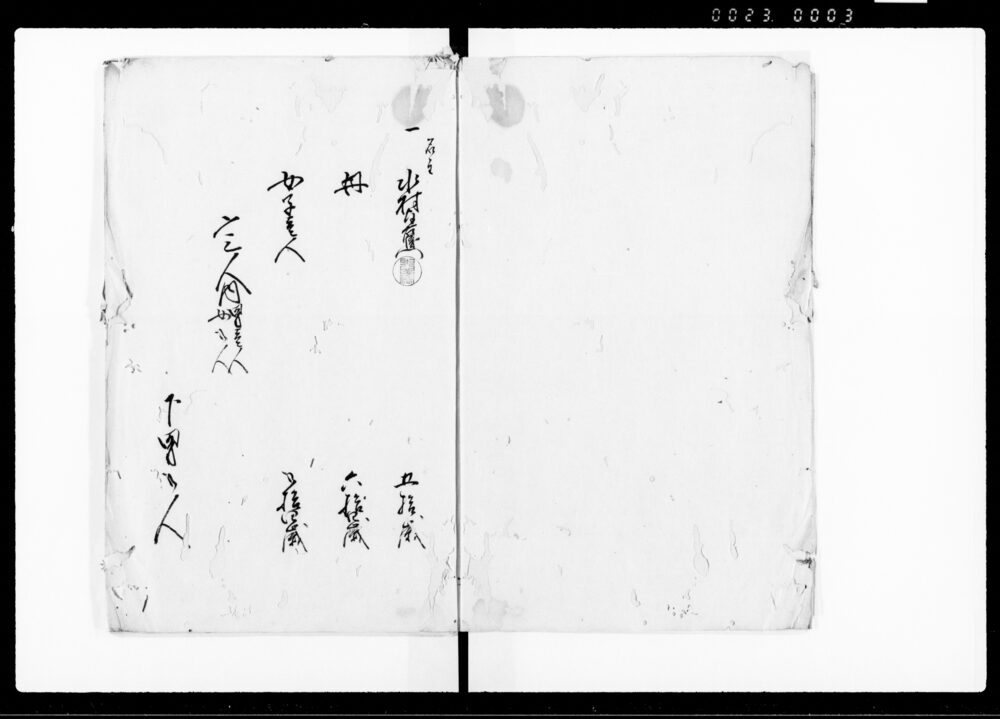 0023 0003
一 名主
水村
五拾歳
母
六拾
歳
女子壱人
歳
〆三人内 男壱人
女弐人
下男弐人